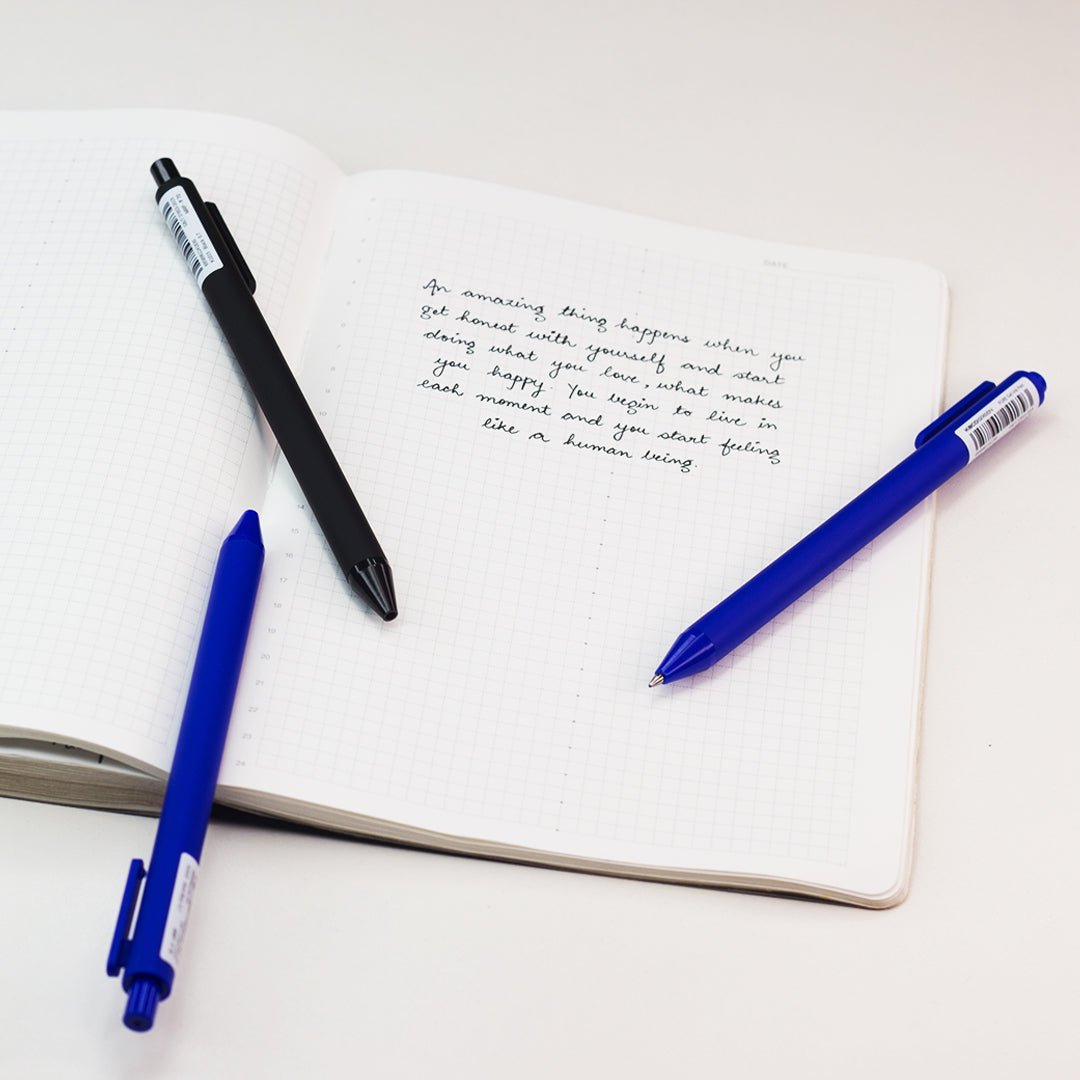 DATE
An amazing thing happens when you
get honest with yourself and start
doing what you love, what makes
you happy. You begin to live in
each moment and you start feeling
like a human being.
10
14
16
17
19
20
21
22
23
24